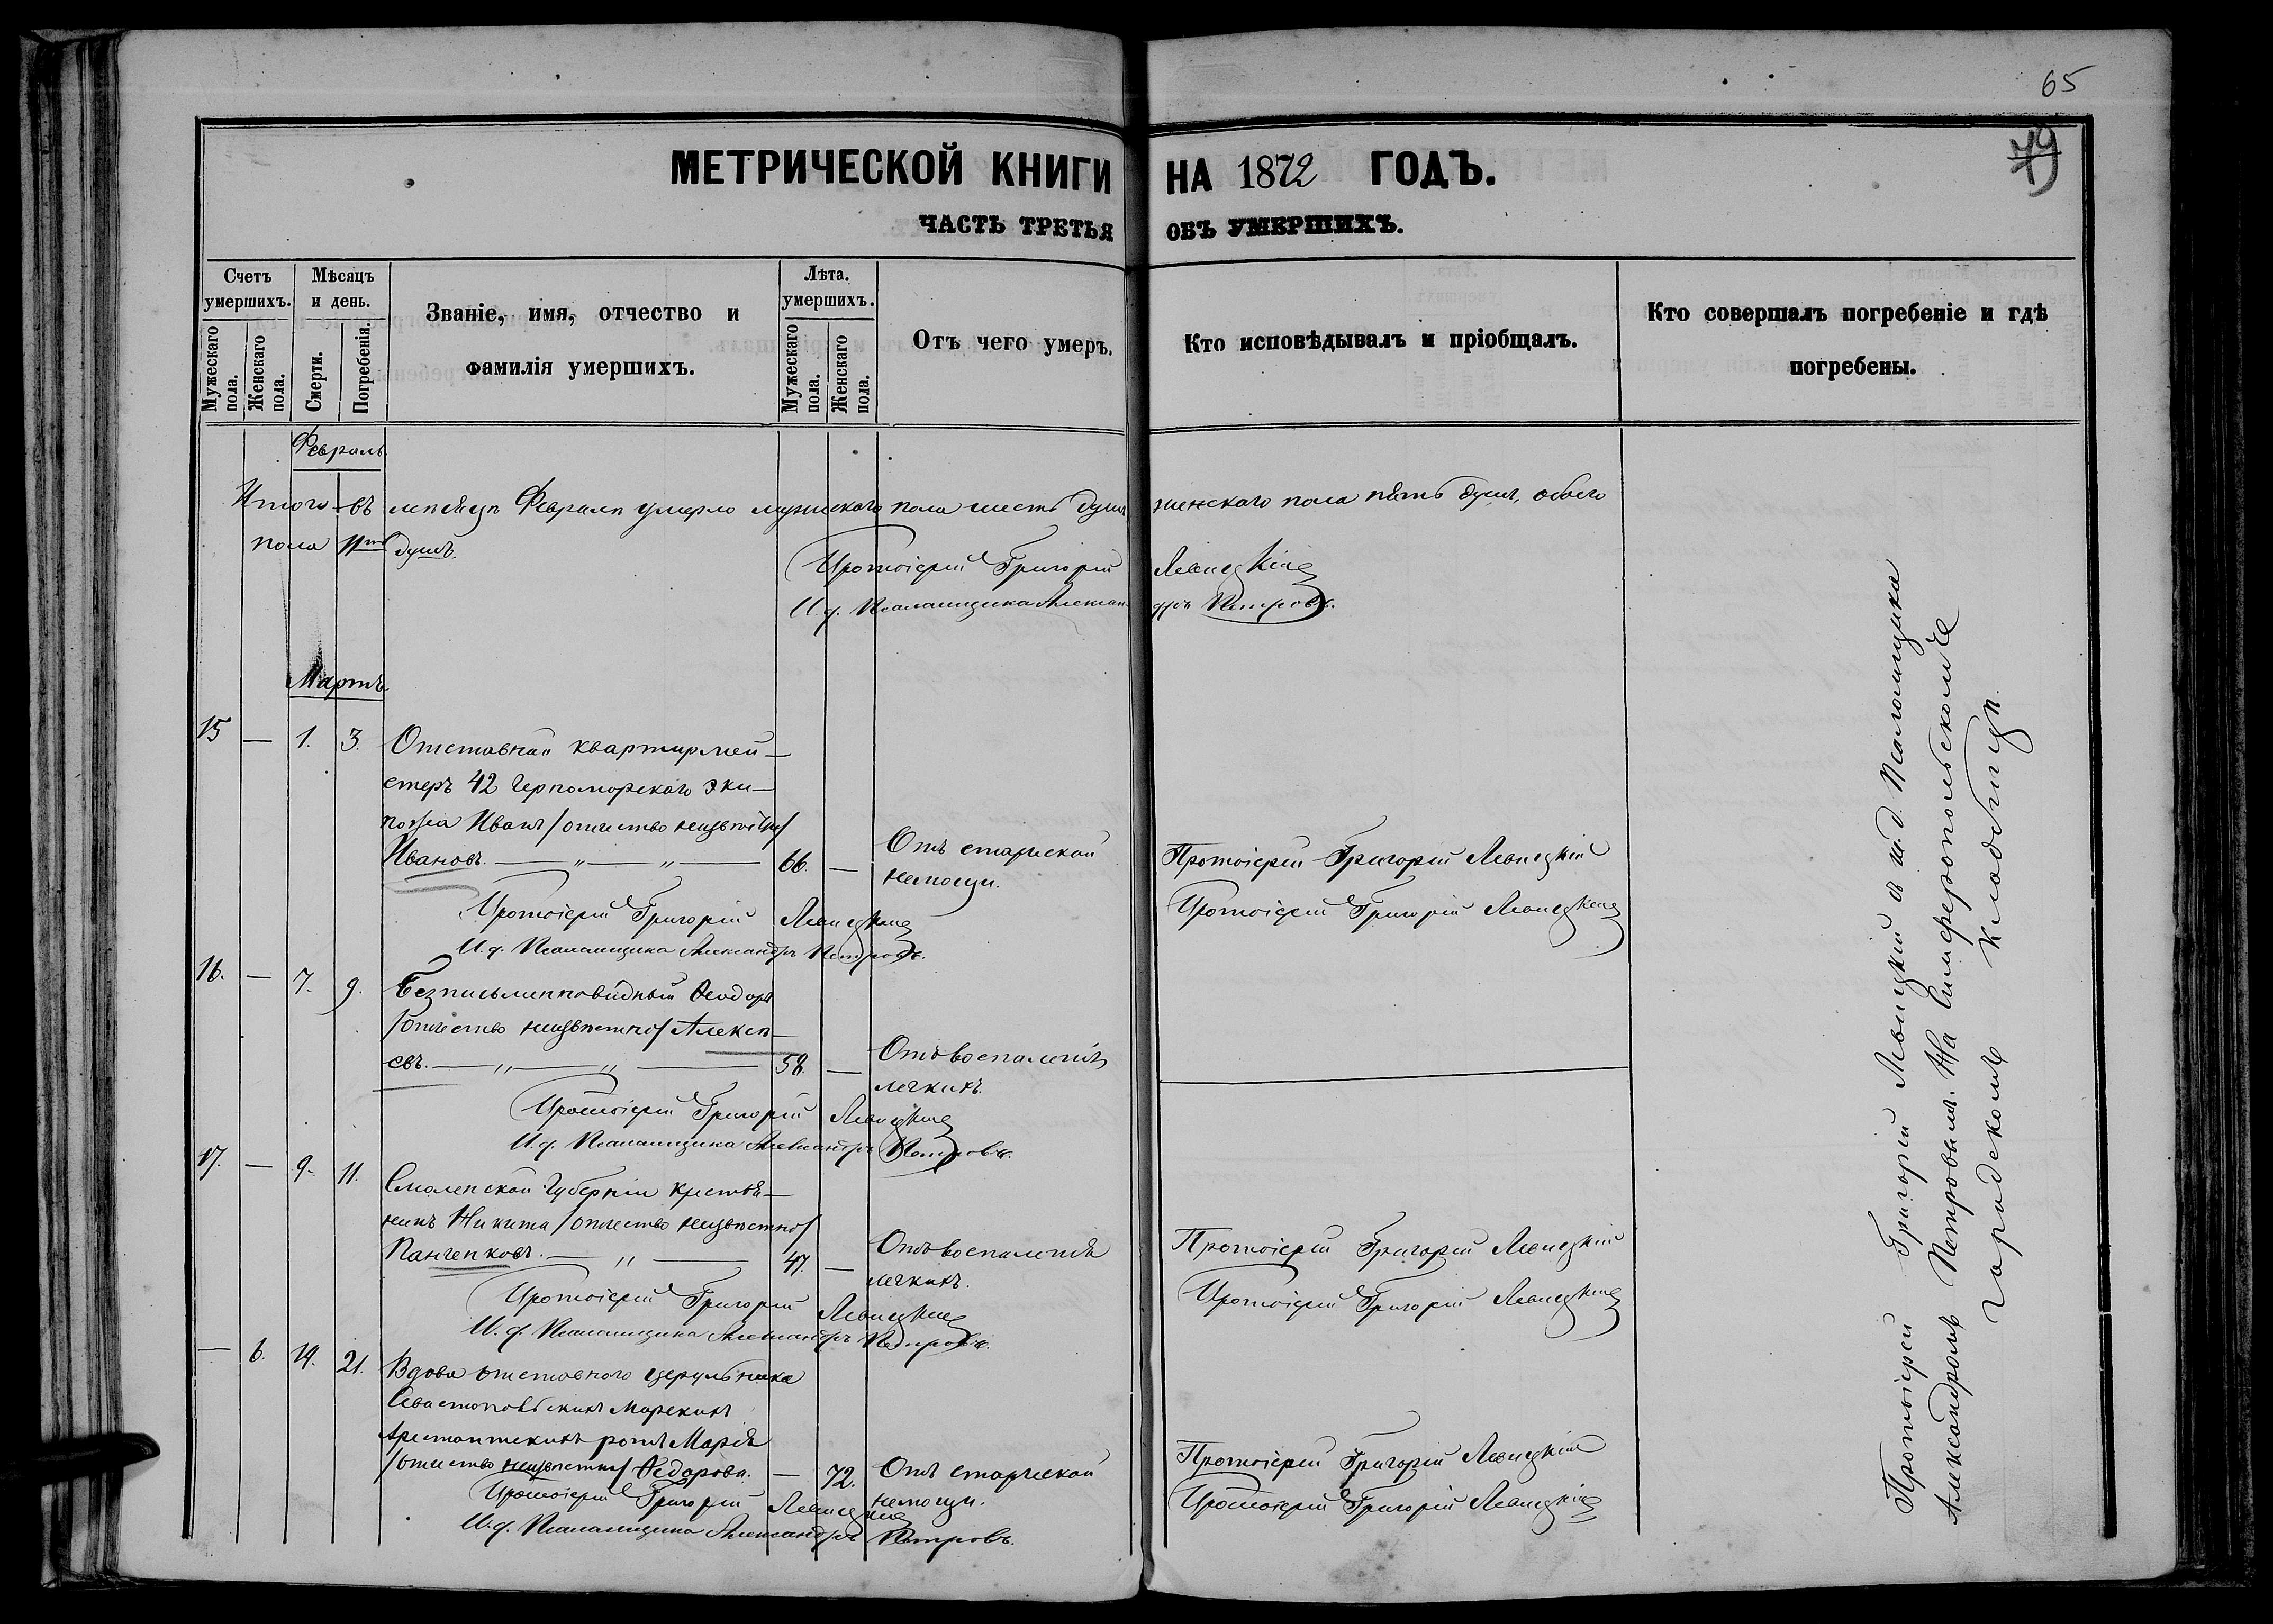 65
79
МЕТРИЧЕСКОЙ КНИГИ НА 1872 ГОДЪ.
ЧАСТЬ ТРЕТЬЯ ОБЪ УМЕРШИХЪ.
Счетъ умершихъ.
Мужескаго пола.
Женскаго пола.
Мѣсяцъ и день.
Смерти.
Погребенія.
Званіе, имя, отчество и
фамилія умершихъ.
Лѣта умершихъ.
Мужескаго пола.
Женскаго пола.
Отъ чего умеръ.
Кто исповѣдывалъ и пріобщалъ.
Кто совершалъ погребеніе и гдѣ
погребены.
Февраль
Итого въ мѣсяцѣ Февралѣ умерло мужескаго пола шесть душъ женскаго пола пять душъ, обоего
пола 11ть душъ.
Протоіерей Григорій Левицкій
И. д. Псаломщика Александръ Петровъ.
Мартъ.
15 — 1. 3. Отставной квартирмей—
стеръ 42 Черноморскаго эки—
пажа Иванъ /отчество неизвѣстно/
Ивановъ. — „ — „ — 66. — Отъ старческой
немощи.
Протоіерей Григорій Левицкій
Протоіерей Григорій Левицкій
Протоіерей Григорій Левицкій
И. д. Псаломщика Александръ Петровъ.
16. — 7. 9. Безписьменновидный Ѳеодоръ
/отчество неизвѣстно/ Алексѣ—
евъ. — „ — „ — 58. — Отъ воспаленія
легкихъ.
Протоіерей Григорій Левицкій
И. д. Псаломщика Александръ Петровъ.
17. — 9. 11. Смоленской Губерніи крестья—
нинъ Никита /отчество неизвѣстно/
Панченковъ. — „ — 47. — Отъ воспаленія
легкихъ.
Протоіерей Григорій Левицкій
Протоіерей Григорій Левицкій
Протоіерей Григорій Левицкій
И. д. Псаломщика Александръ Петровъ.
— 6. 19. 21. Вдова отставнаго церульника
Севастопольскихъ Морскихъ
Арестантскихъ ротъ Марія
/отчество неизвѣстно/ Ѳедорова. — 72. Отъ старческой
немощи.
Протоіерей Григорій Левицкій
Протоіерей Григорій Левицкій
Протоіерей Григорій Левицкій
И. д. Псаломщика Александръ Петровъ.
Протоіерей Григорій Левицкій съ и. д. Псаломщика
Александромъ Петровымъ. На Симферопольскомъ
городскомъ кладбищѣ.